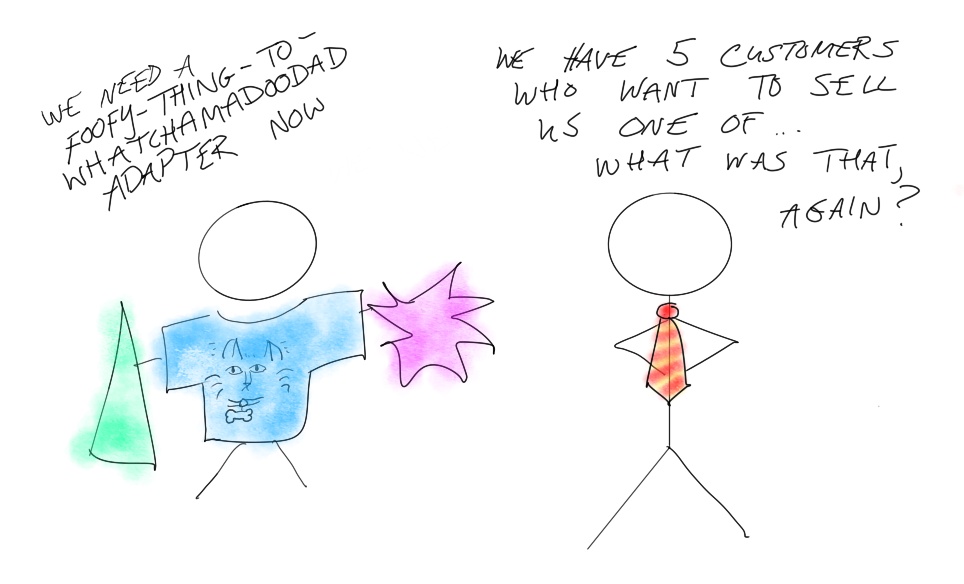 WE NEED A
FOOFY-THING-TO-
WHATCHAMADOODAD
ADAPTER NOW
WE HAVE 5 CUSTOMERS
WHO WANT TO SELL
US ONE OF...
WHAT WAS THAT,
AGAIN?